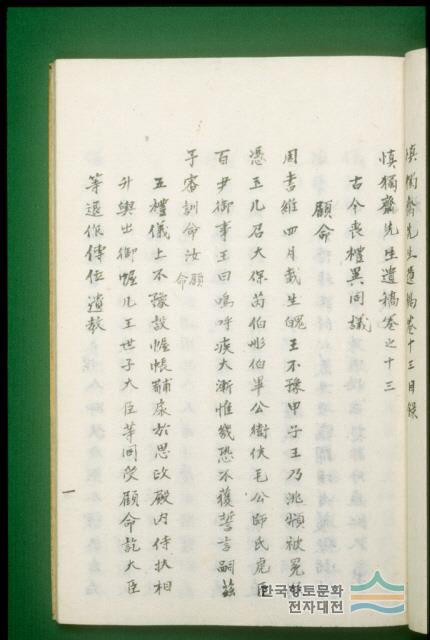 愼獨齋先生遺稿卷十三目錄
愼獨齋先生遺稿卷之十三
古今喪禮異同議
顧命
周書維四月哉生魄王不豫甲子王乃洮頮被冕
憑玉几召大保芮伯彤伯畢公衛侯毛公師氏虎臣
百尹御事王曰嗚呼疾大漸惟幾恐不獲誓言嗣茲
予審訓命汝 顧命
五禮儀上不豫設幄帳黼扆於思政殿內侍扶相
升輿出御幄几王世子大臣等同受顧命訖大臣
等退作傳位遺教
一
한국향토문화
전자대전